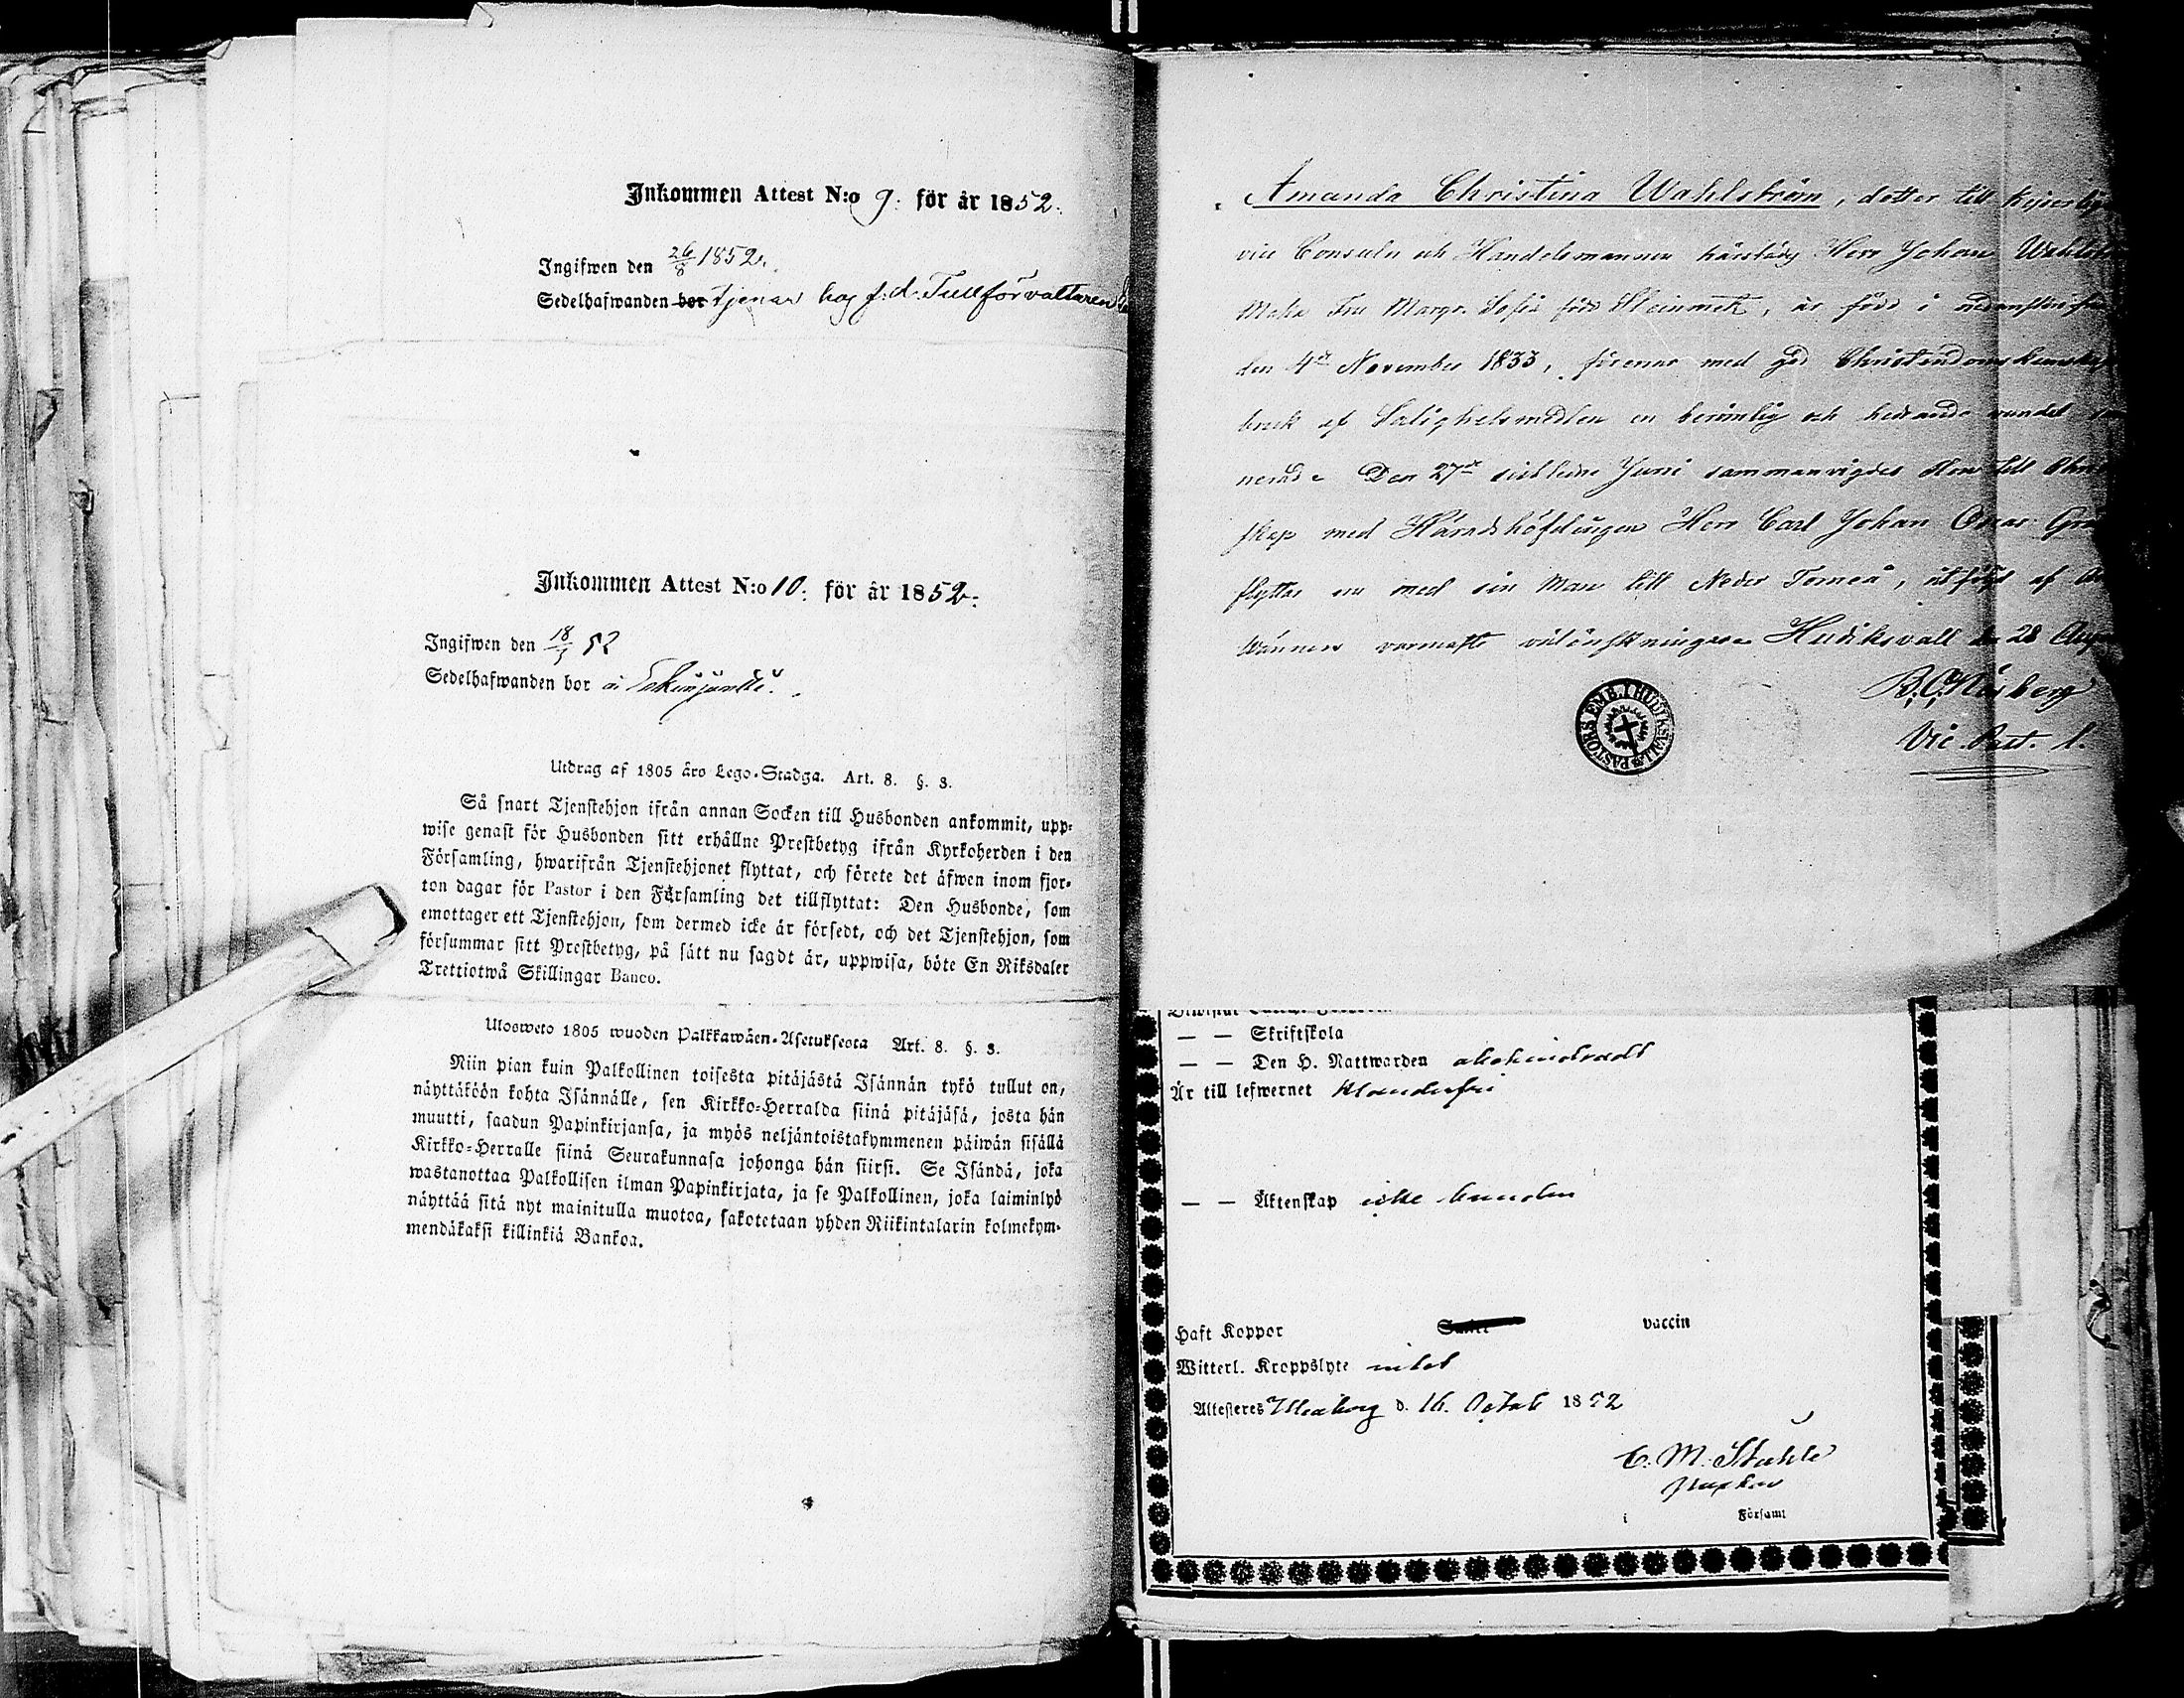 Inkommen Attest N:o 9. för år 1852.
Ingifwen den 26/8 1852.
Sedelhafwanden bor tjenar hos f.d. Tullförvaltaren
Inkommen Attest N:o 10. för år 1852.
Ingifwen den 18/5 52
Sedelhafwanden bor å
Utdrag af 1805 års Lego-Stadga. Art. 8. §. 3.
Så snart Tjenstehjon ifrån annan Socken till Husbonden ankommit, upp-
wise genast för Husbonden sitt erhållne Prestbetyg ifrån Kyrkoherden i den
Församling, hwarifrån Tjenstehjonet flyttat, och förete det äfwen inom fjor-
ton dagar för Pastor i den Församling det tillflyttat: Den Husbonde, som
emottager ett Tjenstehjon, som dermed icke är försedt, och det Tjenstehjon, som
försummar sitt Prestbetyg, på sätt nu sagdt är, uppwisa, böte En Riksdaler
Trettiotwå Skillingar Banco.
Ulosweto 1805 wuoden Palkkawäen-Asetuksesta Art. 8. §. 3.
Niin pian kuin Palkollinen toisesta pitäjästä Isännän tykö tullut on,
näyttäköön kohta Isännälle, sen Kirkko-Herralda siinä pitäjäsä, josta hän
muutti, saadun Papinkirjansa, ja myös neljäntoistakymmenen päiwän sisällä
Kirkko-Herralle siinä Seurakunnasa johonga hän siirsi. Se Isändä, joka
wastanottaa Palkollisen ilman Papinkirjata, ja se Palkollinen, joka laiminlyö
näyttää sitä nyt mainitulla muotoa, sakotetaan yhden Riikintalarin kolmekym-
mendäkaksi killinkiä Bankoa.
Amanda Christina Wahlström, dotter till
vice Consuln och Handelsmannen härstädes Herr Johan
Maka Fru Margr. Sofia född Steinmetz, är född i
den 4de November 1833, förenar med god
bruk af Salighetsmedlen en berömlig och hedrande vandel
Den 27de sistledne Juni sammanvigdes Hon till
skap med Häradshöfdingen Herr Carl Johan Oscar
flyttar nu med sin Man till Neder Torneå, åtföljd af
Wänners varmaste välönskningar. Hudiksvall den 28
Vic. Past. l.
PASTORS EMB. I HUDIKSVALL
— — Skriftskola
— — Den H. Nattwarden obehindradt
Är till lefwernet klanderfri
— — Äktenskap icke bunden
Haft Koppor vaccin
Witterl. Kroppslyte intet
Attesteres Uleåborg d. 16. Octob 1852
C. M. Ståhle
i Församl